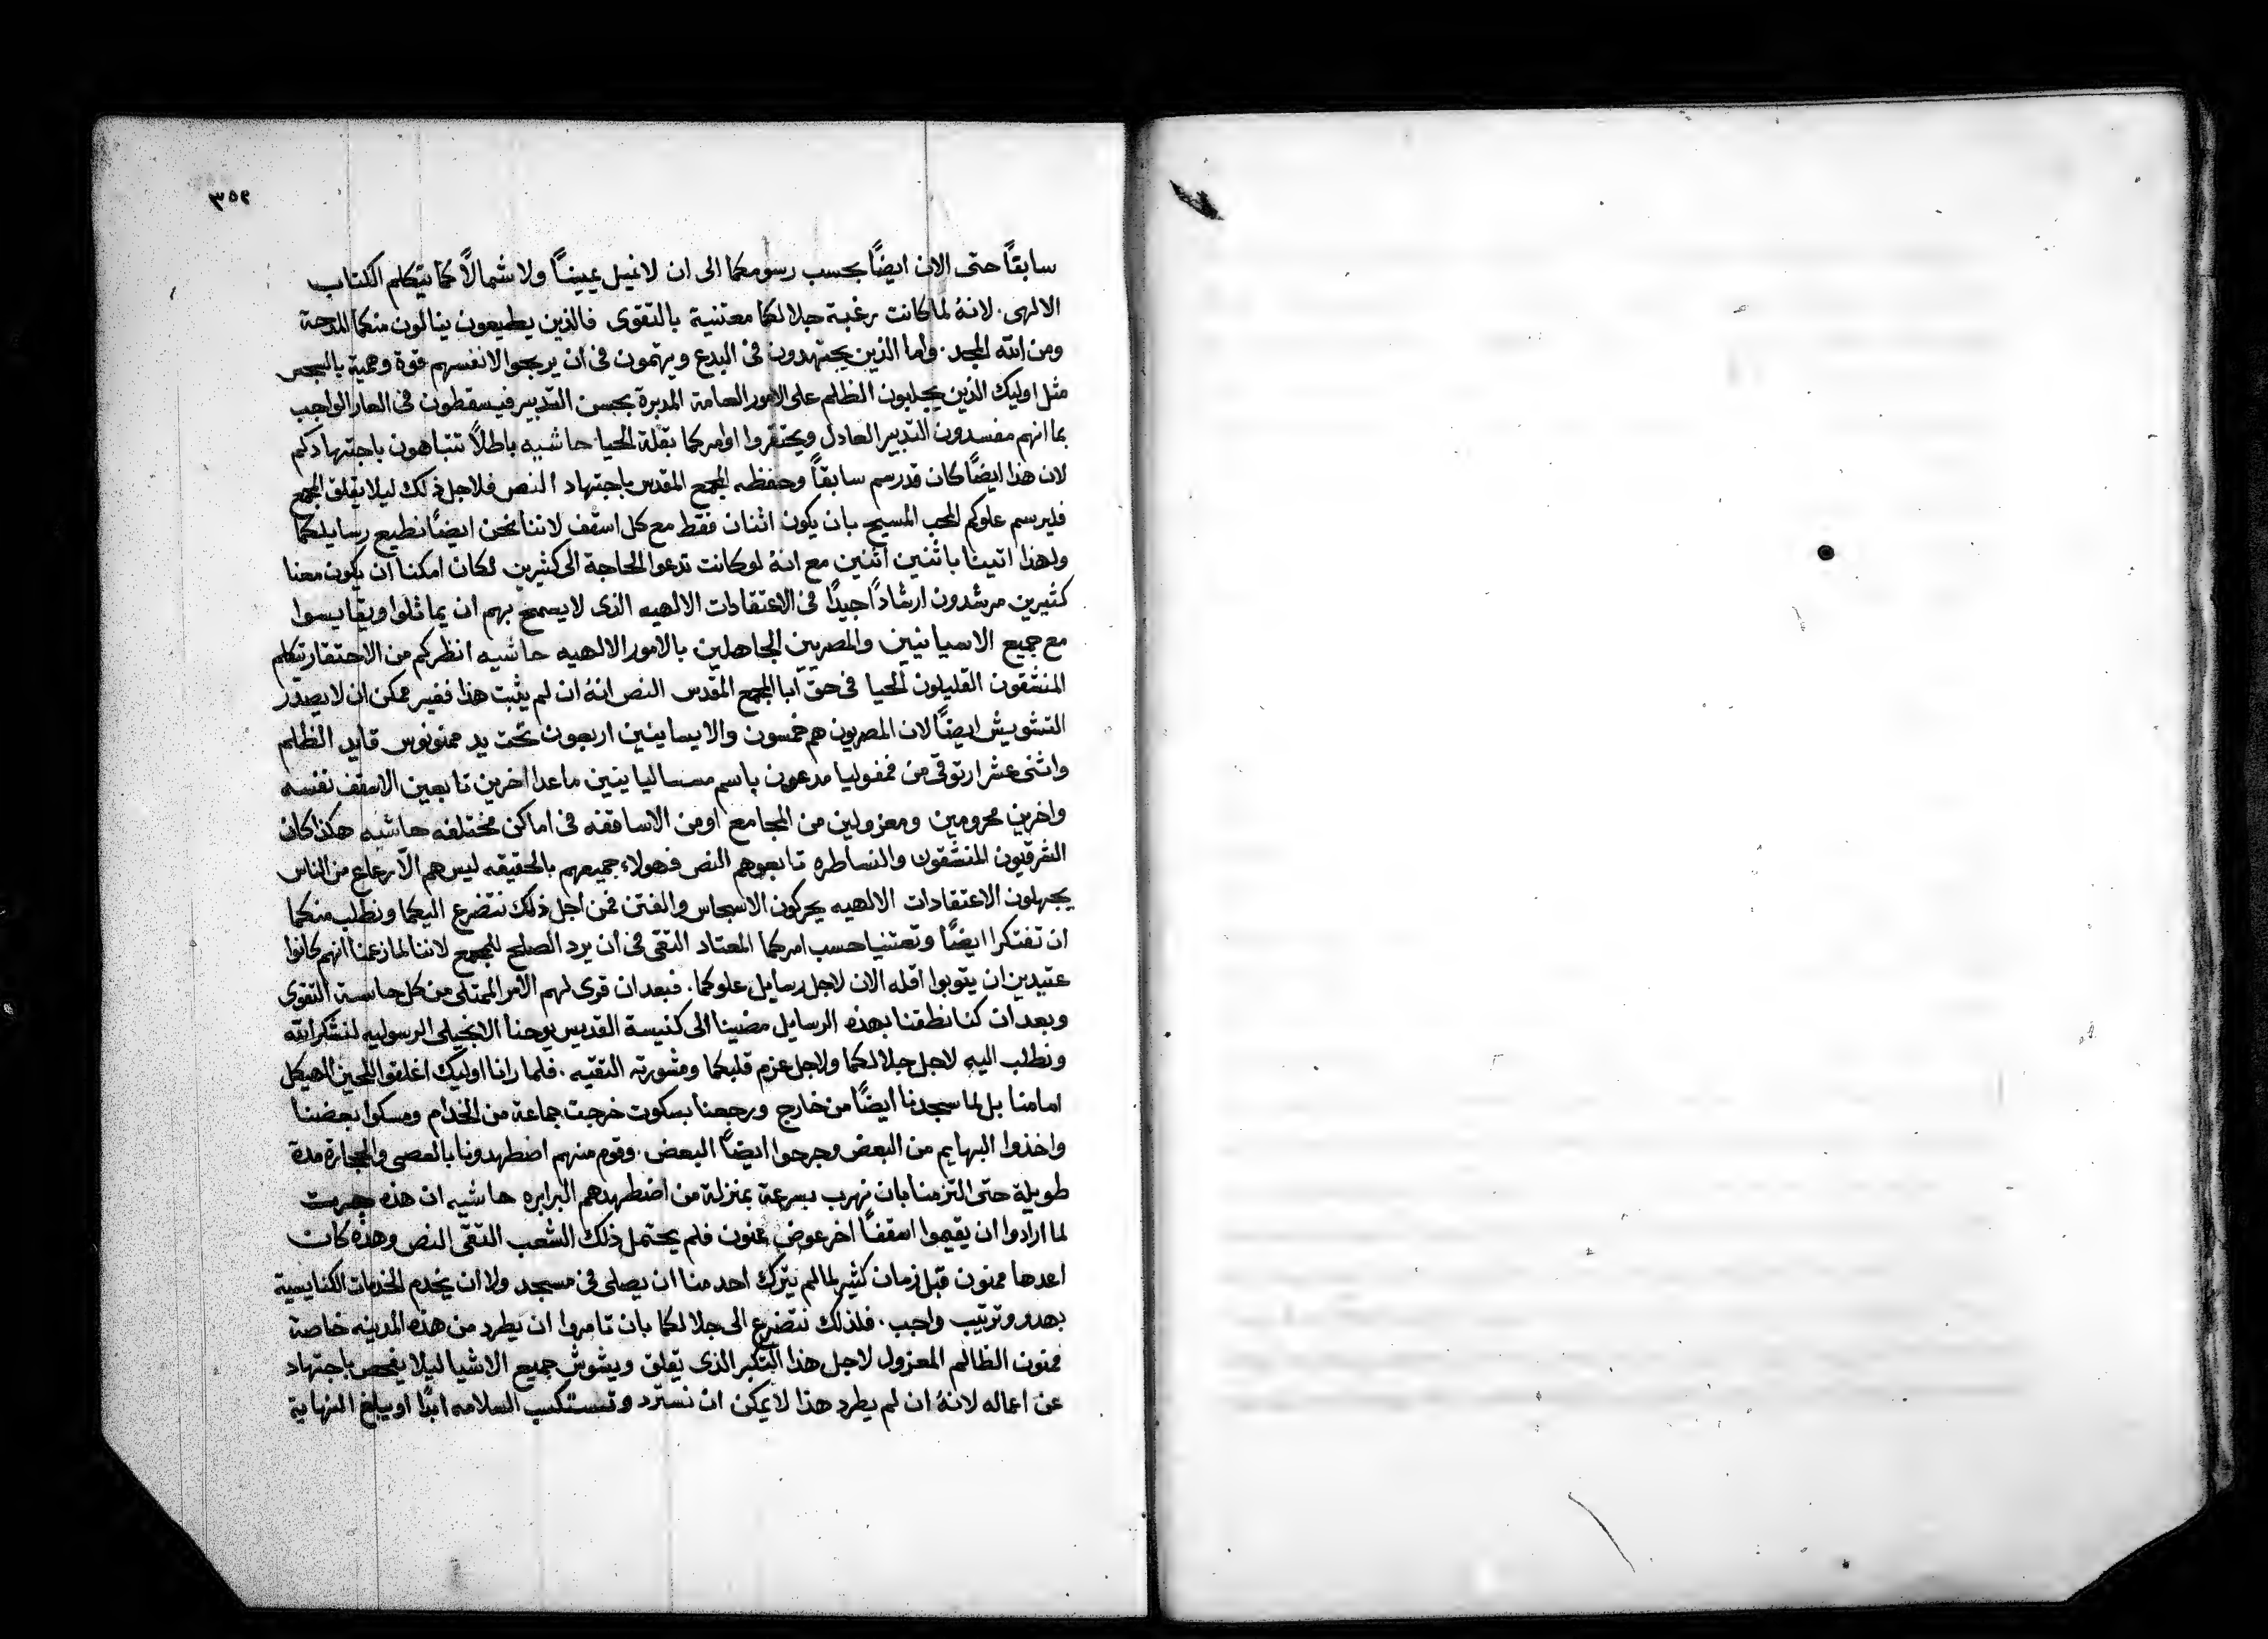 ٣٥٢
سابقاً حتى الان ايضاً بحسب رسومكما الى ان لا نميل يميناً ولا شمالاً كما يتكلم الكتاب
الالهى. لانهُ لما كانت رغبة جلالكما معتنية بالتقوى فالذين يطيعون ينالون منكما المدحة
ومن الله المجد. واما الذين يجتهدون فى البدع ويهتمون فى ان يربحوا لانفسهم قوة وهمية بالسجس
مثل اوليك الذين يجلبون الظلم على الامور العامة المدبرة بحسن التدبير فيسقطون فى العار الواجب
بما انهم مفسدون التدبير العادل ويحتقروا اوامركما بقلة الحيا حاشيه باطلاً تتباهون باجتهادكم
لان هذا ايضاً كان قد رسم سابقاً وحفظه المجمع المقدس باجتهاد النص فلاجل ذلك ليلا يقلق المجمع
فليرسم علوكم المحب المسيح بان يكون اثنان فقط مع كل اسقف لاننا نحن ايضاً نطيع رسايلكما
ولهذا اتينا باثنين اثنين مع انهُ لو كانت تدعوا الحاجة الى كثيرين لكان امكننا ان يكون معنا
كثيرين مرشدون ارشاداً جيداً فى الاعتقادات الالهيه الذى لا يسمح بهم ان يماثلوا ويقايسوا
مع جميع الاسيانيين والمصريين الجاهلين بالامور الالهيه حاشيه انظر كم من الاحتقار يتكلم
المنشقون القليلون الحيا فى حق ابا المجمع المقدس النص انهُ ان لم يثبت هذا فغير ممكن ان لا يصدر
التشويش ايضاً لان المصريون هم خمسون والايسيانيين اربعون تحت يد ممنونوس قايد الظلم
واثنى عشر ارتوقى من فمفوليا مدعون باسم مسالياينين ماعدا اخرين تابعين الاسقف نفسه
واخرين محرومين ومعزولين من المجامع او من الاساقفه فى اماكن مختلفه حاشيه هكذا كان
الشرقيون المنشقون والنساطره تابعوهم النص فهولاء جميعهم بالحقيقه ليس هم الاّ رعاع من الناس
يجهلون الاعتقادات الالهيه يحركون الاسجاس والفتن فمن اجل ذلك نتضرع اليكما ونطلب منكما
ان تفتكرا ايضاً وتعتنيا حسب امركما المعتاد التقى فى ان يرد الصلح للمجمع لاننا لما زعمنا انهم كانوا
عتيدين ان يتوبوا اقله الان لاجل رسايل علوكما. فبعد ان قرى لهم الامر الممتلى من كل حاسة التقوى
وبعد ان كنا نطقنا بهذه الرسايل مضينا الى كنيسة القديس يوحنا الانجيلى الرسوليه لنشكر الله
ونطلب اليه لاجل جلالكما ولاجل عزم قلبكما ومشورته التقيه. فلما رانا اوليك اغلقوا للحين الهيكل
امامنا بل لما سجدنا ايضاً من خارج ورجعنا بسكوت خرجت جماعة من الخدام ومسكوا بعضنا
واخذوا البهايم من البعض وجرحوا ايضاً البعض. وقوم منهم اضطهدونا بالعصى والحجارة مدة
طويلة حتى التزمنا بان نهرب بسرعة بمنزلة من اضطهدهم البرابره حاشيه ان هذه جرت
لما ارادوا ان يقيموا اسقفاً اخر عوض ممنون فلم يحتمل ذلك الشعب التقى النص وهذه كان
اعدها ممنون قبل زمان كثير لما لم يترك احد منا ان يصلى فى مسجد ولا ان يخدم الخدمات الكنايسية
بهدو وترتيب واجب. فلذلك نتضرع الى جلالكما بان تامروا ان يطرد من هذه المدينه خاصة
ممنون الظالم المعزول لاجل هذا التكبر الذى يقلق ويشوش جميع الاشيا ليلا يفحص باجتهاد
عن اعماله لانهُ ان لم يطرد هذا لا يمكن ان نسترد وتستكسب السلامه ابداً او يبلغ النهاية